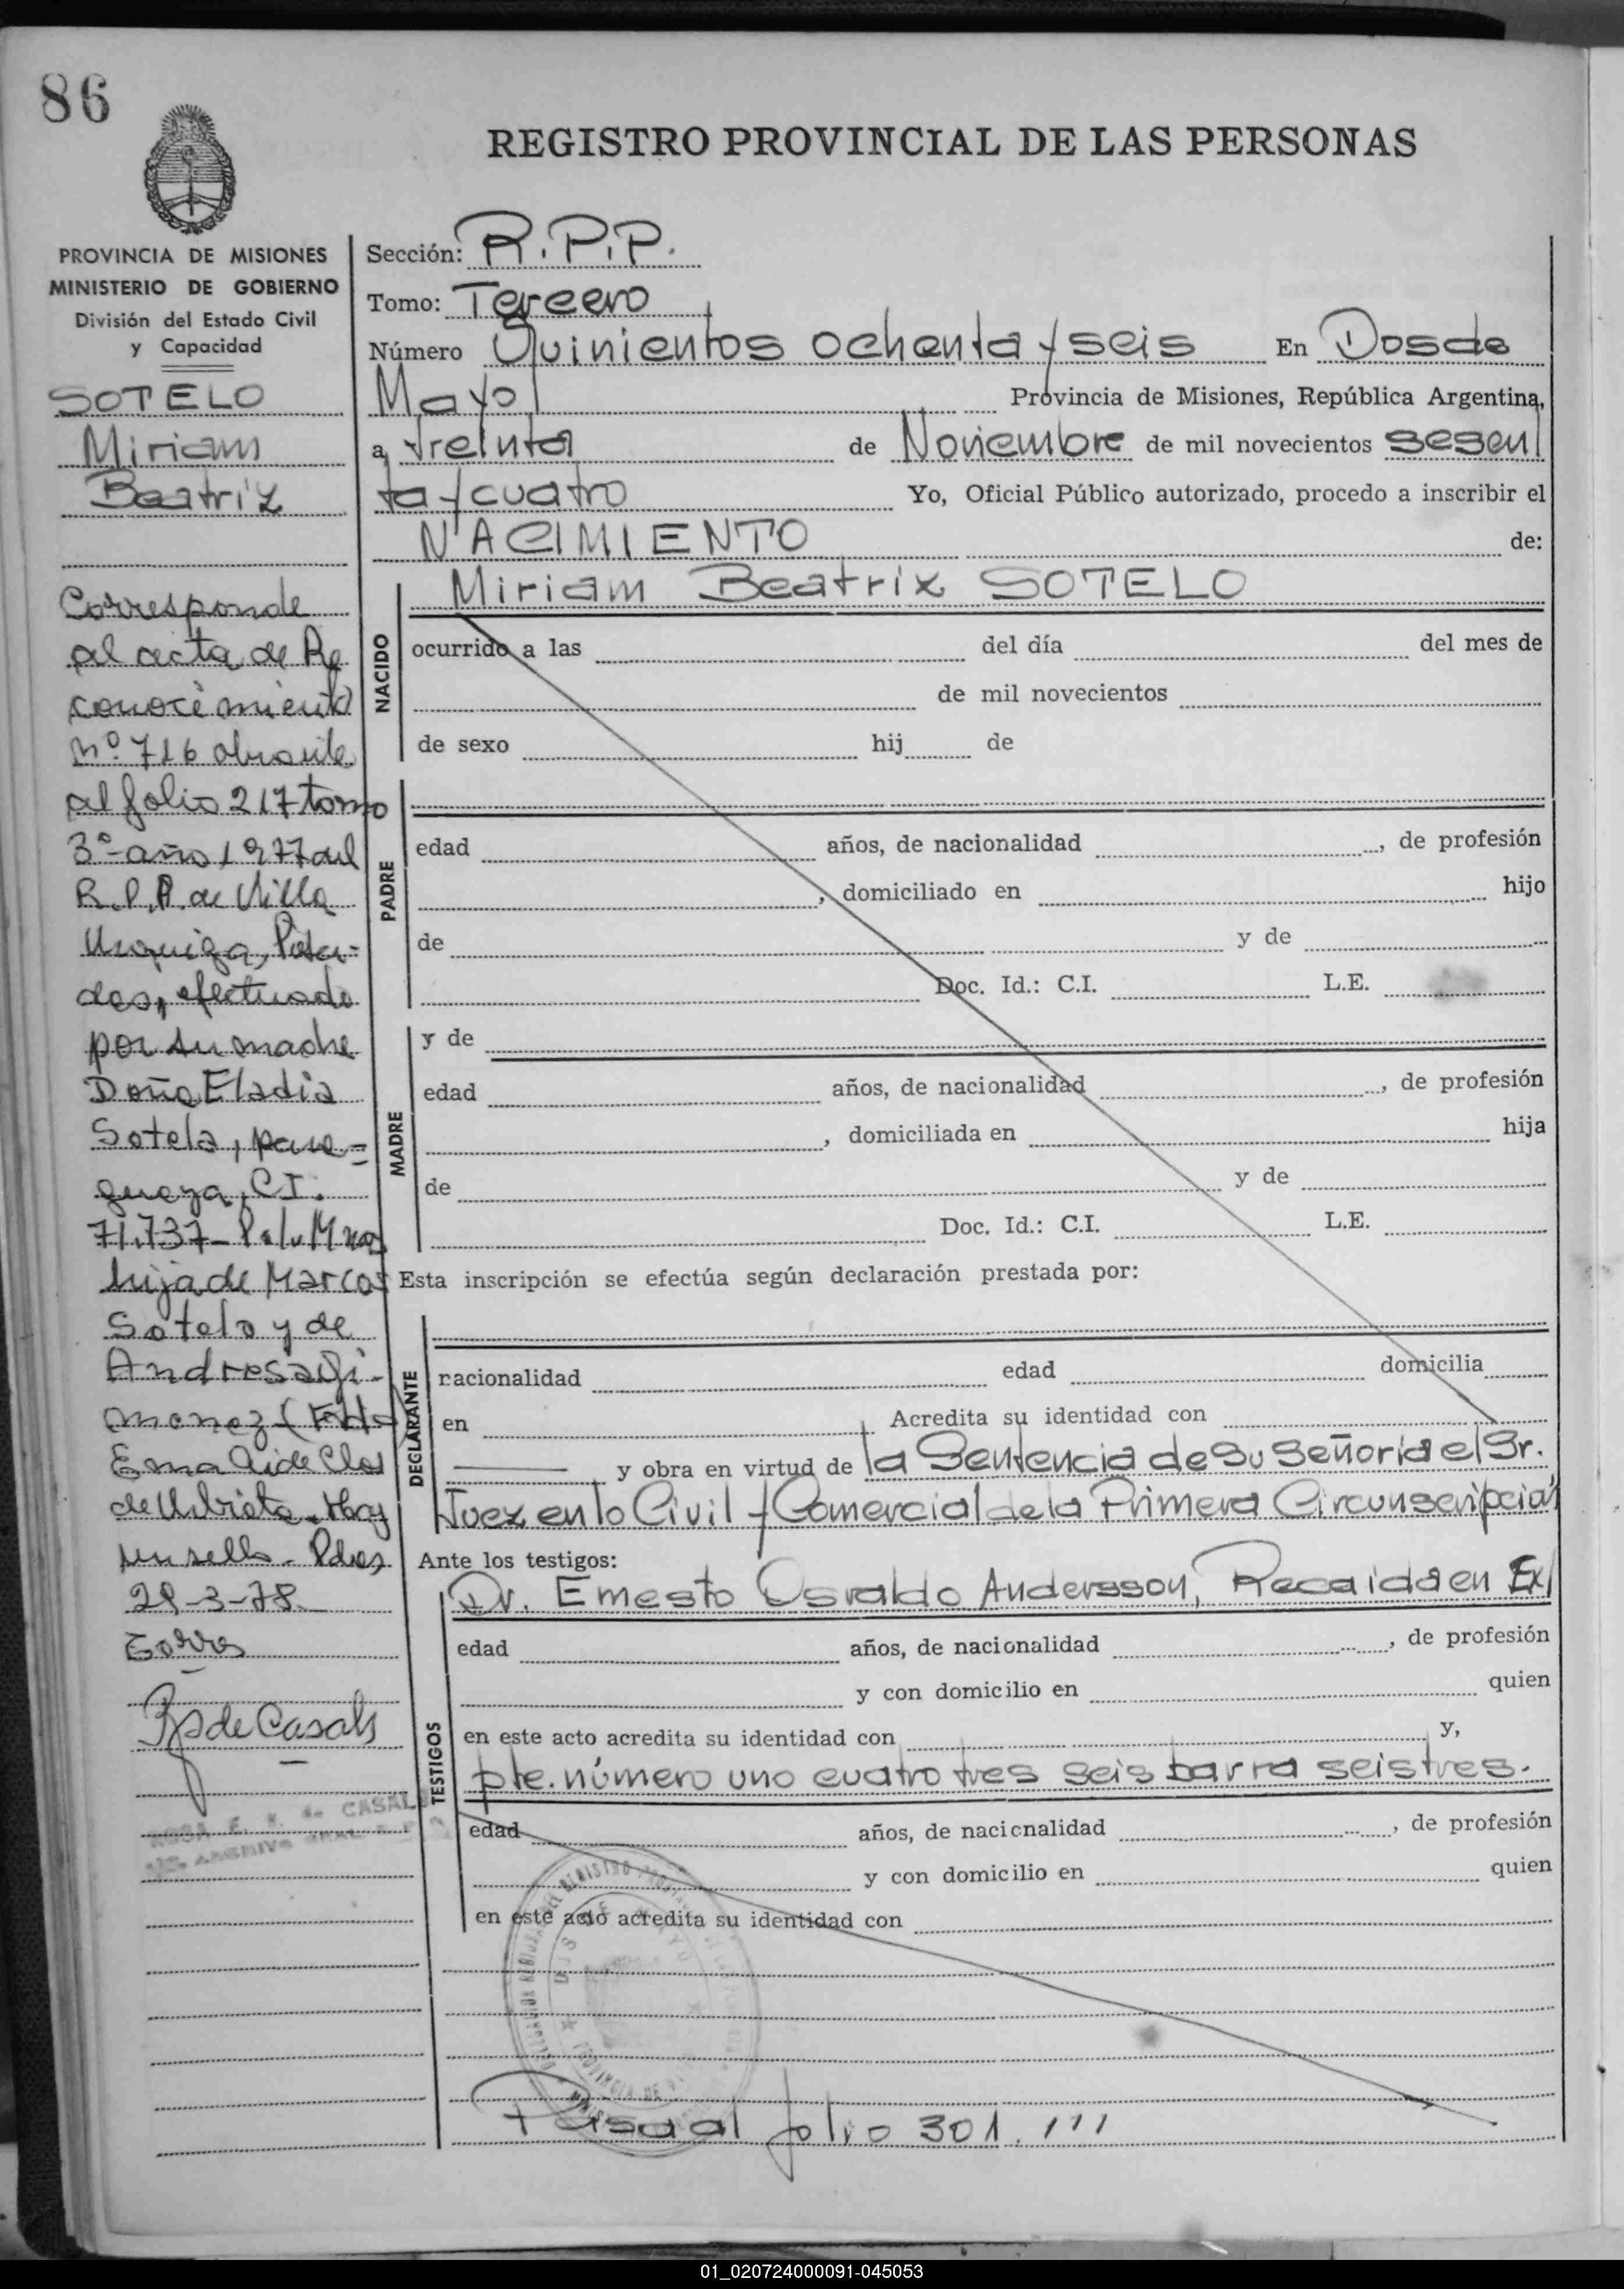 86
REGISTRO PROVINCIAL DE LAS PERSONAS
PROVINCIA DE MISIONES
MINISTERIO DE GOBIERNO
División del Estado Civil
y Capacidad
SOTELO
Miriam
Beatriz
Corresponde
al acta de Re
conocimiento
nº 716 obrante
al folio 217 tomo
3º año 1977 del
R.P.P. de Villa
Urquiza, Posa=
das, efectuado
por su madre
Doña Eladia
Sotelo, para=
guaya, C.I.
71.737-Pol. Mnes
hija de Marcos
Sotelo y de
Andresa Gi-
menez (Fdo
Ema Aide
de Urbieta. Hay
un sello. Pdas
29-3-78
Torres
R de Casals
ROSA E. de CASALS
ARCHIVO GRAL
Sección: R.P.P.
Tomo: Tercero
Número Quinientos ochenta y seis En Dos de
Mayo Provincia de Misiones, República Argentina,
a treinta de Noviembre de mil novecientos sesen
ta y cuatro Yo, Oficial Público autorizado, procedo a inscribir el
NACIMIENTO de:
Miriam Beatrix SOTELO
NACIDO
ocurrido a las del día del mes de
de mil novecientos
de sexo hij de
PADRE
edad años, de nacionalidad , de profesión
, domiciliado en hijo
de y de
Doc. Id.: C.I. L.E.
MADRE
y de
edad años, de nacionalidad , de profesión
, domiciliada en hija
de y de
Doc. Id.: C.I. L.E.
Esta inscripción se efectúa según declaración prestada por:
DECLARANTE
nacionalidad edad domicilia
en Acredita su identidad con
y obra en virtud de la Sentencia de Su Señoría el Sr.
Juez en lo Civil y Comercial de la Primera Circunscripción
Ante los testigos:
TESTIGOS
Dr. Ernesto Osvaldo Andersson, Recaida en Ex
edad años, de nacionalidad , de profesión
y con domicilio en quien
en este acto acredita su identidad con y,
pte. número uno cuatro tres seis barra seis tres.
edad años, de nacionalidad , de profesión
y con domicilio en quien
en este acto acredita su identidad con
DOS DE MAYO
PROVINCIA DE
Pasa al folio 301. !!!
01_020724000091-045053